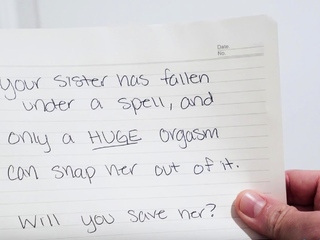 Date
No.
your sister has fallen
under a spell, and
only a HUGE orgasm
can snap her out of it.
Will you save her?